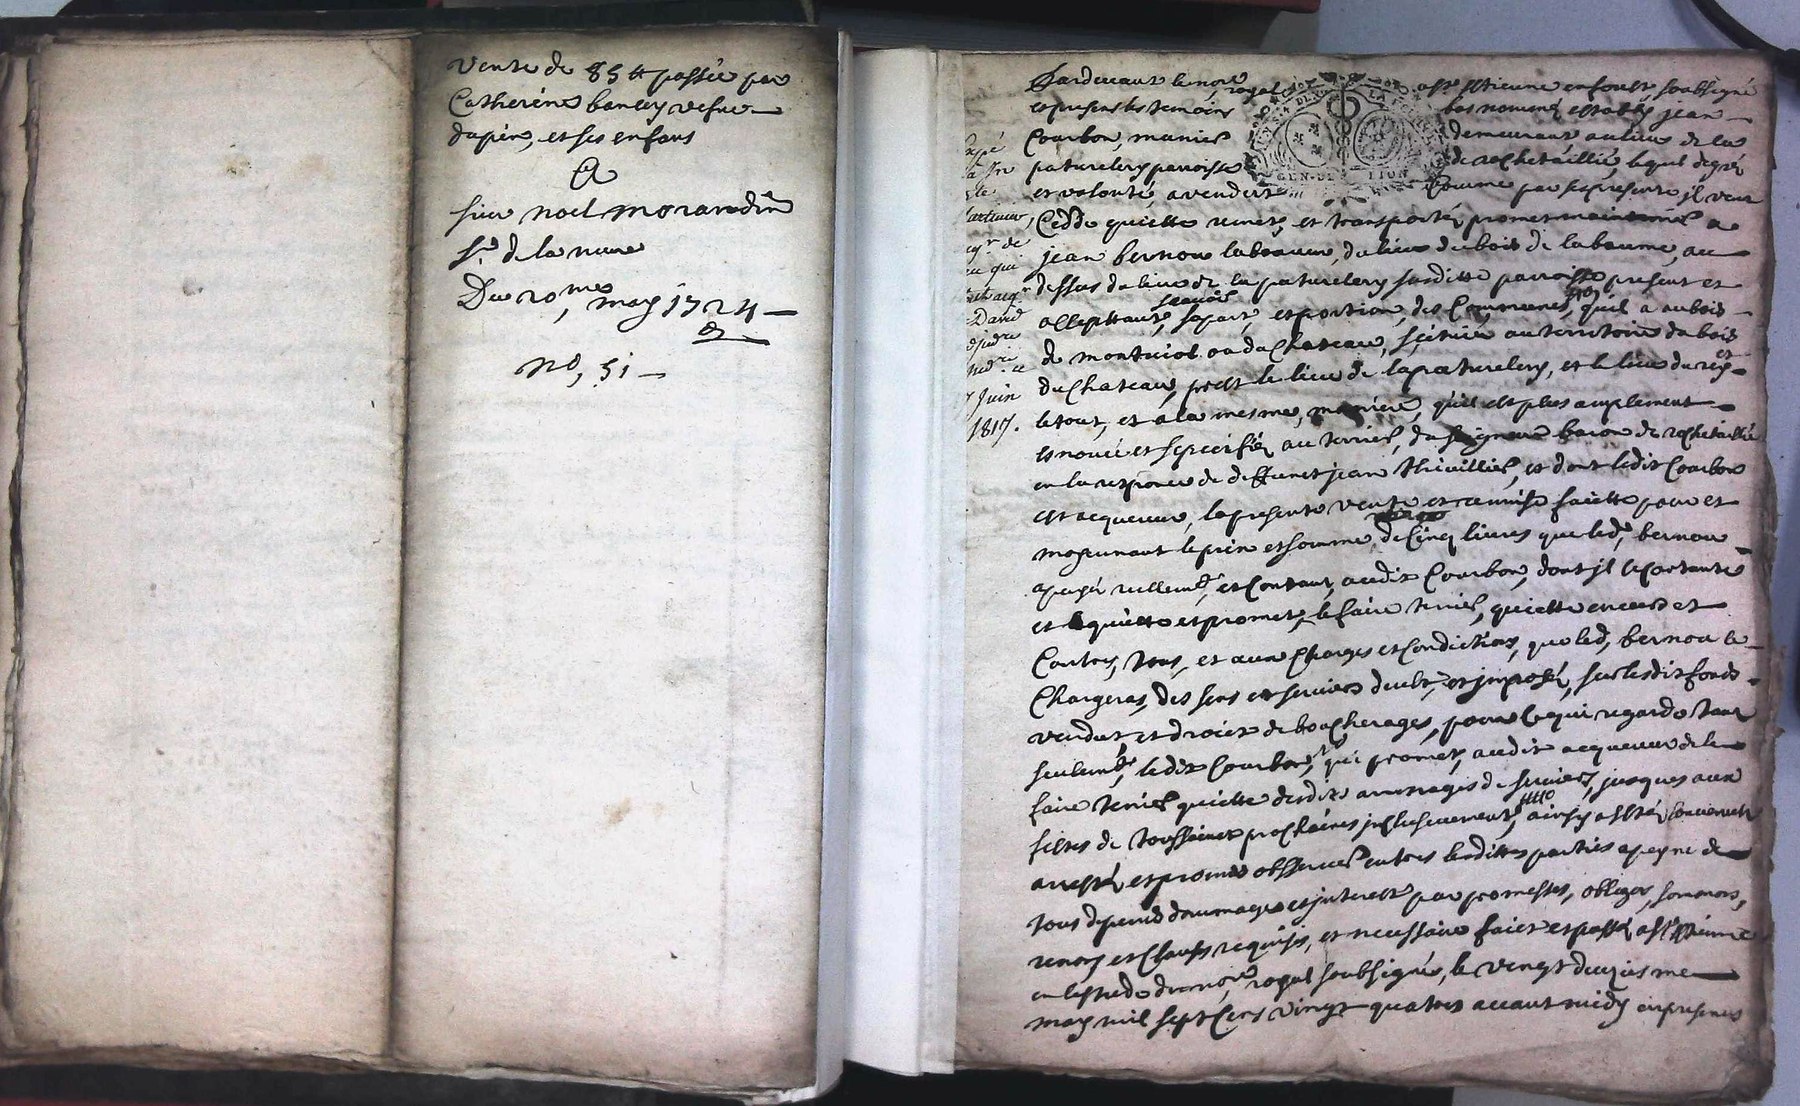 Vente de 85 tt passée par
Catherine bancey vefue
dupin, et ses enfans
A
sieur noel morandin
sr. de la
Du 20me, may 1724
No, 51
Pardeuant le nore royal a St Estienne en forest soubsigné
et presens les temoins bas nommés estably jean
Courbon, manier demeurant au lieu de la
paturelery parroisse de rochetaillié, lequel de gré
et volonté, a vendu comme par ses presente il vent
Cedde quiette remet, et transporté, promet maintenir a
jean bernou laboureur, du lieu du bois de la baume, au
dessus du lieu de la paturelery susditte parroisse present et
acceptant, scauoir sa part, et portion, des Communes, qu'il a au bois
de montuiol ou du Chateau, scituée au territoire du bois
du Chateau, prest le lieu de la paturelery, et le lieu du
le tout, et a la mesme, maniere, qu'il est plus amplement
et speciffié, au terrier, du seigneur baron de rochetaillié
en la responce de deffunct jean thiuillier, et dont ledit Courbon
est acquereur, la presente vente et remise faicte pour et
moyenant le prix et somme, de Cinq liures que led, bernou
a payé reellemt, et Contant, audit Courbon, dont jl se contante
et quitte et promet, le faire tenir, quiette enuers et
Contres, tous, et aux Charges et Condictions, que led, bernou se
Chargeras, des sens et seruices deubt, et jmposés, sur lesdit fonds
vendut, et droict de boucherages, pour Ce qui regarde tant
seulemt, ledit Courbon, qui promet, audit acquereur de le
faire tenir quiette desdits arrerages de seruices, jusques aux
festes de toussaincts prochaines jnclusiuement, ainsy a esté conuenut
arresté, et promis obseruer entres lesdittes parties a peyne de
tous depends dommages et jnterest par promesses, obliges, soumons,
renons et Clauses requises, et necessaire faict et passé a St Estienne
en l'estude du nore, royal soubsigné, le vingt deuziesme
may mil sept Cens vingt quatres auant midy en presences
Expé
de
qui
David
juin
1817.
GEN. DE LION